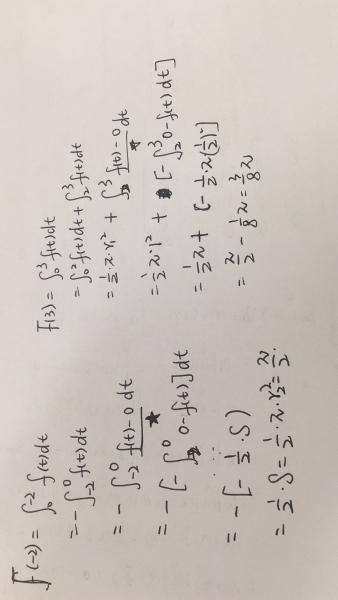 F(-2) = ∫₀⁻² f(t)dt
= -∫₋₂⁰ f(t)dt
= -∫₋₂⁰ f(t)-0 dt
★
= -[-∫₋₂⁰ 0-f(t)]dt
= -[-½·S)
= ½·S = ½·π·r₂² = π/2.
F(3) = ∫₀³ f(t)dt
= ∫₀² f(t)dt + ∫₂³ f(t)dt
= ½·π·r₁² + ∫₂³ f(t)-0 dt
★
= ½π·1² + [-∫₂³ 0-f(t)dt]
= ½π + [-½·π(½)²]
= π/2 - ⅛π = ⅜π